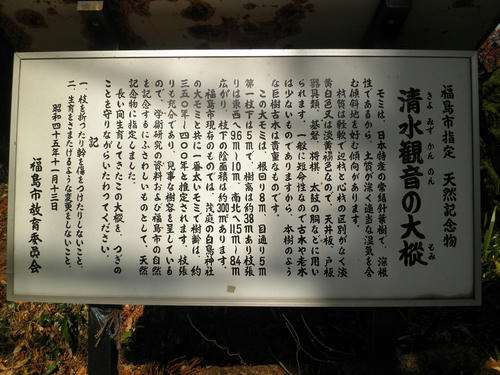 福島市指定 天然記念物
きよ みず かん のん もみ
清水観音の大樅
モミは、日本特産の常緑針葉樹で、深根
性であるから、土質の深く適当な湿気を含
む傾斜地を好む傾向があります。
材質は軟軽で辺材と心材の区別がなく淡
黄白色又は淡黄褐色なので、天井板、戸板
器具類、碁盤、将棋、太鼓の胴などに用い
られます。一般に短命性なので古木や老木
は少ないものでありますから、本樹のよう
な巨樹古木は貴重なものです。
この大モミは、根回り8m、目通り5m
第一枝下は5mで、樹高は約38mあり枝張
りは東西へ9.6m・10m、南北へ11.5m・8.4m
広がり、枝下の陰面積は約300m²あります。
福島市現存のものでは、茂庭の白鳥神社
の大モミと共に一番太いモミで樹齢は、約
三五〇年〜四〇〇年と推定されます。枝張
りも充分であり、見事な樹容を呈している
ので、学術研究の資料および福島市の自然
を記念するにふさわしいものとして、天然
記念物に指定しました。
長い間生育してきたこの大樅を、つぎの
ことを守りながらいたわってください。
記
一、枝を折ったり幹を傷をつけたりしないこと。
二、生育をさまたげるような変更をしないこと。
昭和四十五年十一月十三日
福島市教育委員会